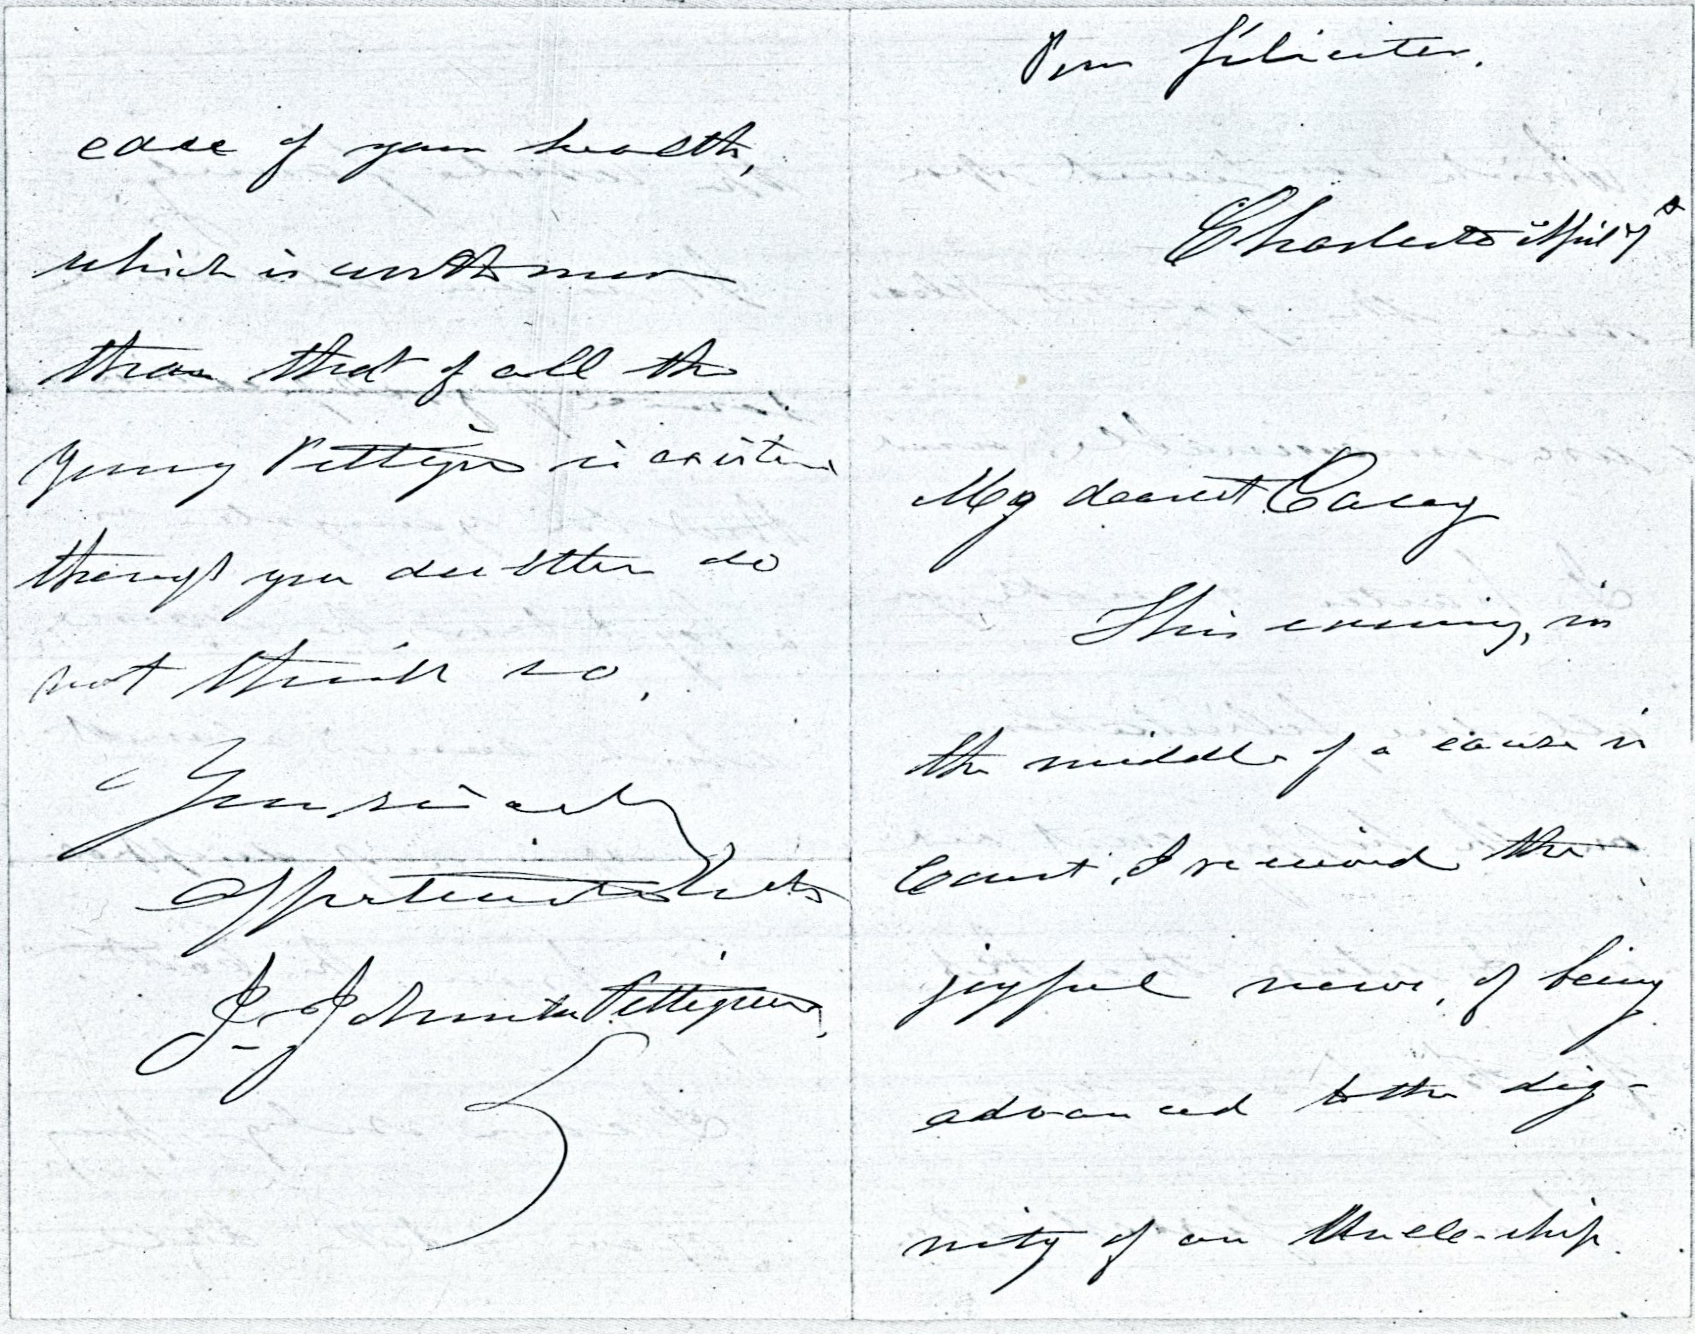 Perm feliciter.
Charleston April 7th
My dearest Carey
This evening, in
the middle of a cause in
Court, I received the
joyful news, of being
advanced to the dig-
nity of an Uncle-ship.
care of your health,
which is worth more
than that of all the
young Pettigrews in existence
though you doubtless do
not think so.
Yours sincerely
Affectionate
J. Johnston Pettigrew